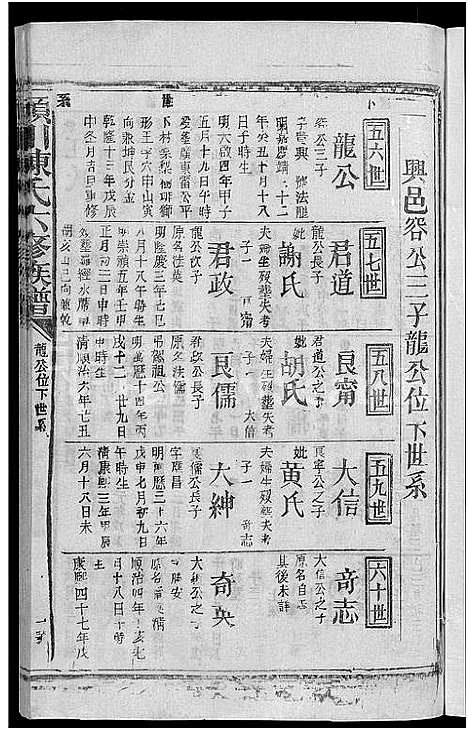 興邑容公三子龍公位下世系
五六世
龍公
容公三子
子貴興
明嘉慶
年癸丑十月十八
日子時生
明天啟四年甲子
五月十九日午時
形王字穴申山寅
向兼坤艮分金
乾隆十三年戊辰
仲冬月吉日重修
五七世
君道
龍公長子
妣
謝氏
夫婦生歿塋失考
子一
君政
龍公次子
原名法英
明隆慶三年己巳
八月十八午時生
明崇禎五年壬申
正月初三日申時
五八世
良甯
君道公之子
妣
胡氏
夫婦生歿塋失考
子一 大信
良儒
君政公長子
原名法儒
號福祖公
明萬曆十四年丙
戌十二月廿九日
申時生
清順治六年己丑
五九世
大信
良寧公之子
妣
黃氏
夫婦生歿塋失考
子一 奇志
大紳
良儒公長子
字應昌
明萬曆三十六年
戊申七月初九日
午時生
清康熙三年甲辰
六月十八日未
六十世
奇志
大信公之子
原名自志
其後未詳
奇英
大紳公之子
順治四年丁亥七
月十八日子時
康熙四十七年戊
潁川陳氏六修族譜
龍公位下世系